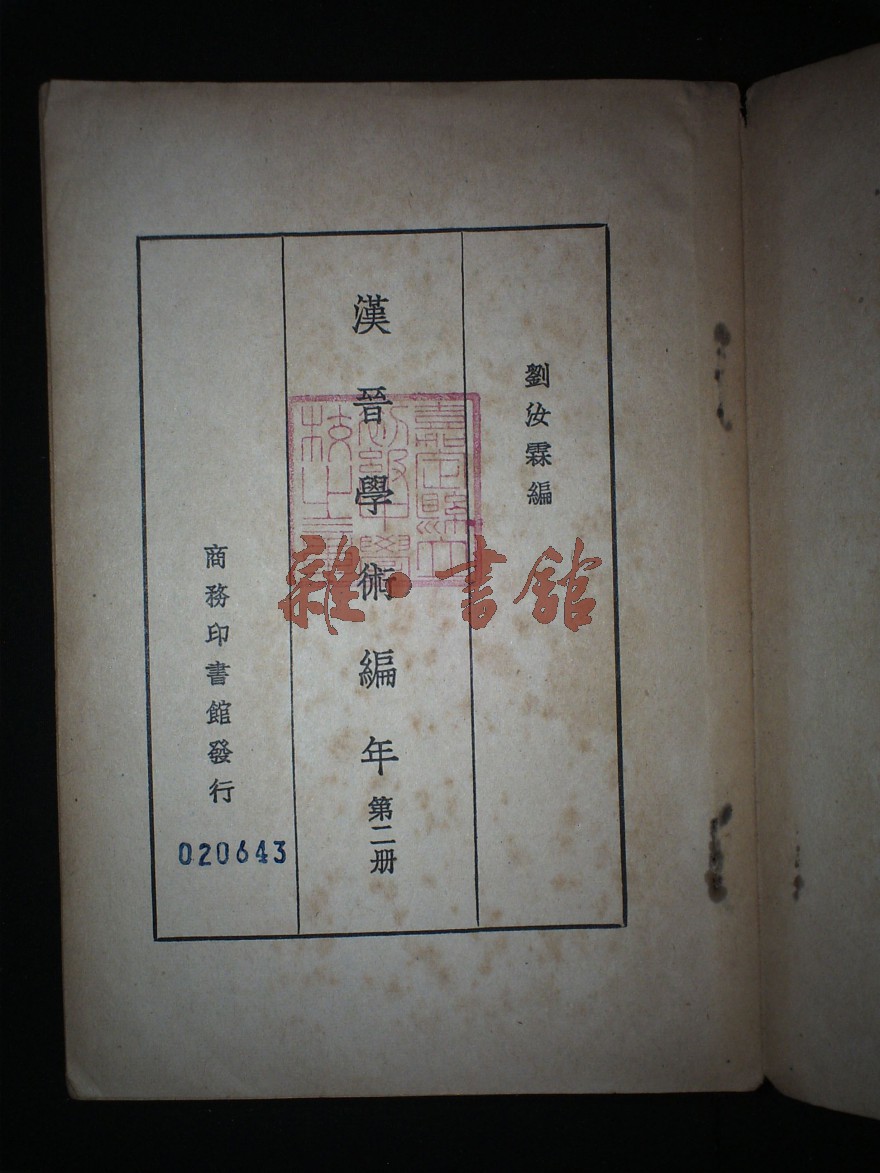 劉汝霖編
漢晉學術編年 第二册
商務印書館發行
020643
雜·書館